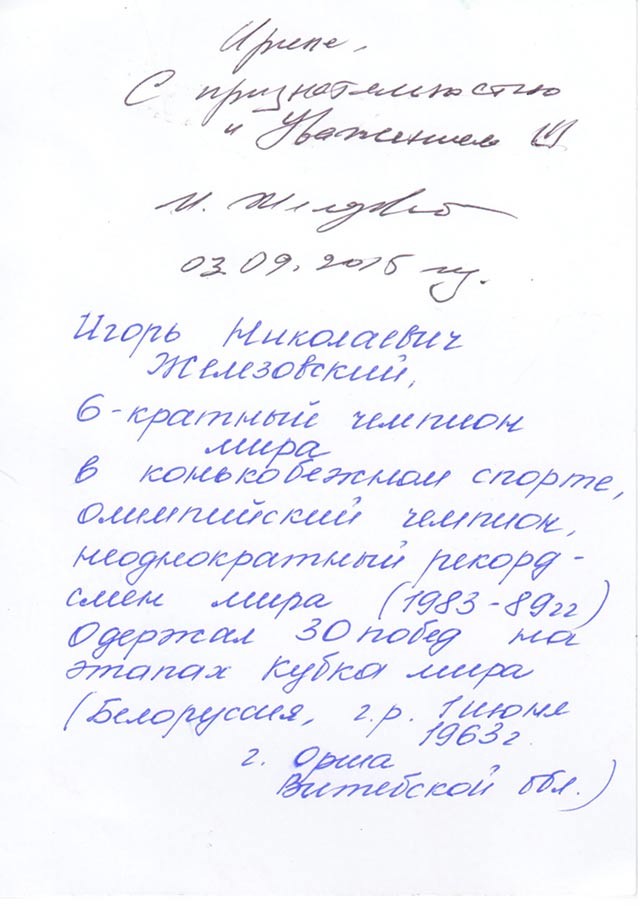 Ирине,
С признательностью
и Уважением (!)
И. Железовс
03.09.2015 г.
Игорь Николаевич
Железовский,
6-кратный чемпион
мира
в конькобежном спорте,
олимпийский чемпион,
неоднократный рекорд-
смен мира (1983-89гг)
Одержал 30 побед на
этапах Кубка мира
(Белоруссия, г.р. 1 июня
1963г.
г. Орша
Витебской обл.)